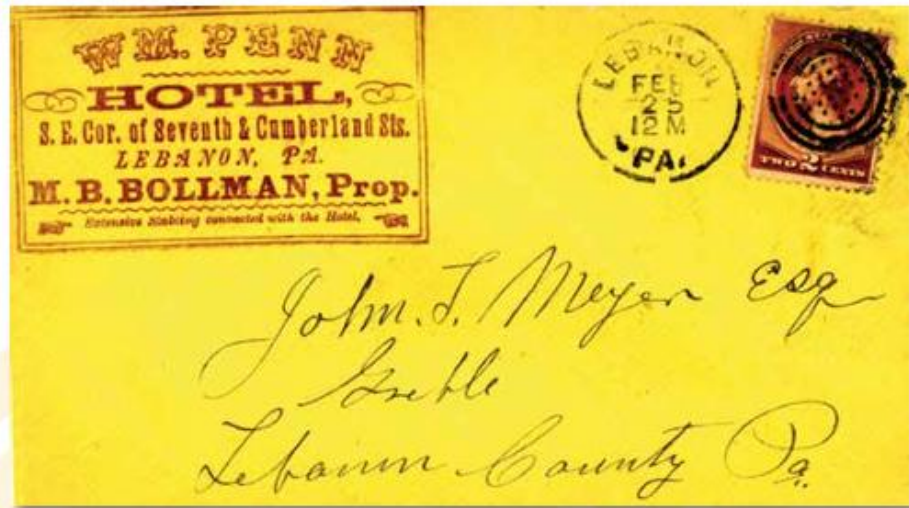 WM. PENN
HOTEL,
S. E. Cor. of Seventh & Cumberland Sts.
LEBANON, PA.
M. B. BOLLMAN, Prop.
Extensive Stabling connected with the Hotel.
LEBANON
FEB
25
12 M
PA.
TWO 2 CENTS
John. T. Meyer Esq
Greble
Lebanon County Pa.